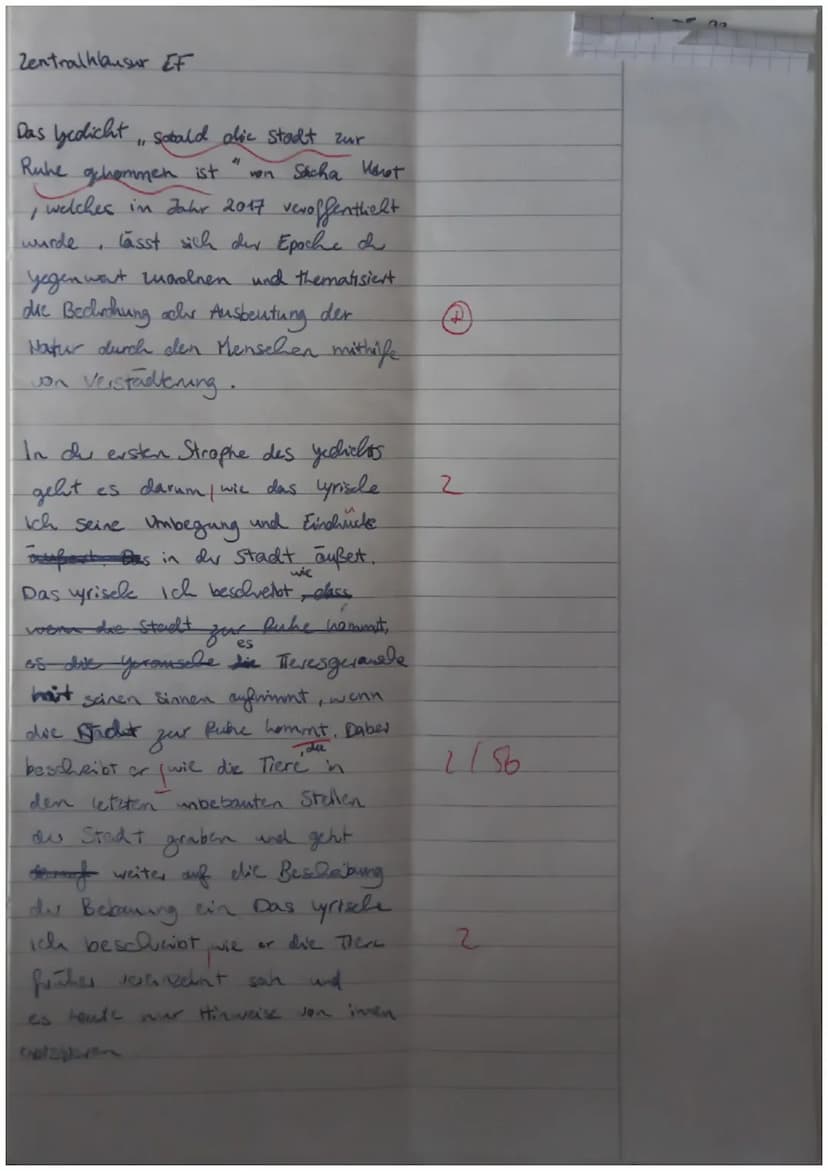 Zentralklausur EF
Das Gedicht „sobald die Stadt zur
Ruhe gekommen ist" von Sacha
, welches im Jahr 2017 veröffentlicht
wurde, lässt sich der Epoche der
Gegenwart zuordnen und thematisiert
die Bedrohung oder Ausbeutung der
Natur durch den Menschen mithilfe
von Verstädterung.
In der ersten Strophe des Gedichts
geht es darum, wie das lyrische
2
Ich seine Umbegung und Eindrücke
in der Stadt äußet.
Das lyrische Ich beschreibt wie
wenn die Stadt zur Ruhe kommt,
es Tieresgeräusche
mit seinen Sinnen aufnimmt, wenn
die Stadt zur Ruhe kommt. Dabei
bescheibt er wie die Tiere, die in
2/Sb
den letzten unbebauten Stellen
der Stadt graben und geht
weiter auf die Bescheibung
der Bebauung ein Das lyrische
Ich beschreibt, wie er die Tiere
2
früher sah und
es heute nur Hinweise von ihnen